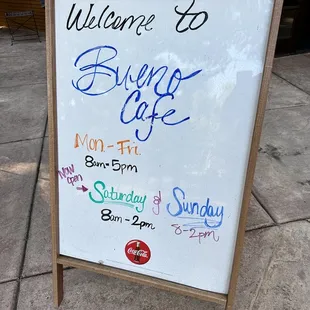 Welcome to
Bueno
Cafe
Mon-Fri.
8am-5pm
NOW
open
Saturday & Sunday
8am-2pm 8-2pm
Coca-Cola